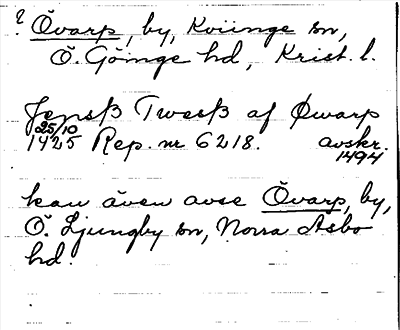 ? Övarp, by, Kviinge sn,
Ö. Göinge hd, Krist. l.
Jenss Twess af Øwarp
25/10
1425 Rep. nr 6218. avskr.
1494
kan även avse Övarp, by,
Ö. Ljungby sn, Norra Åsbo
hd.